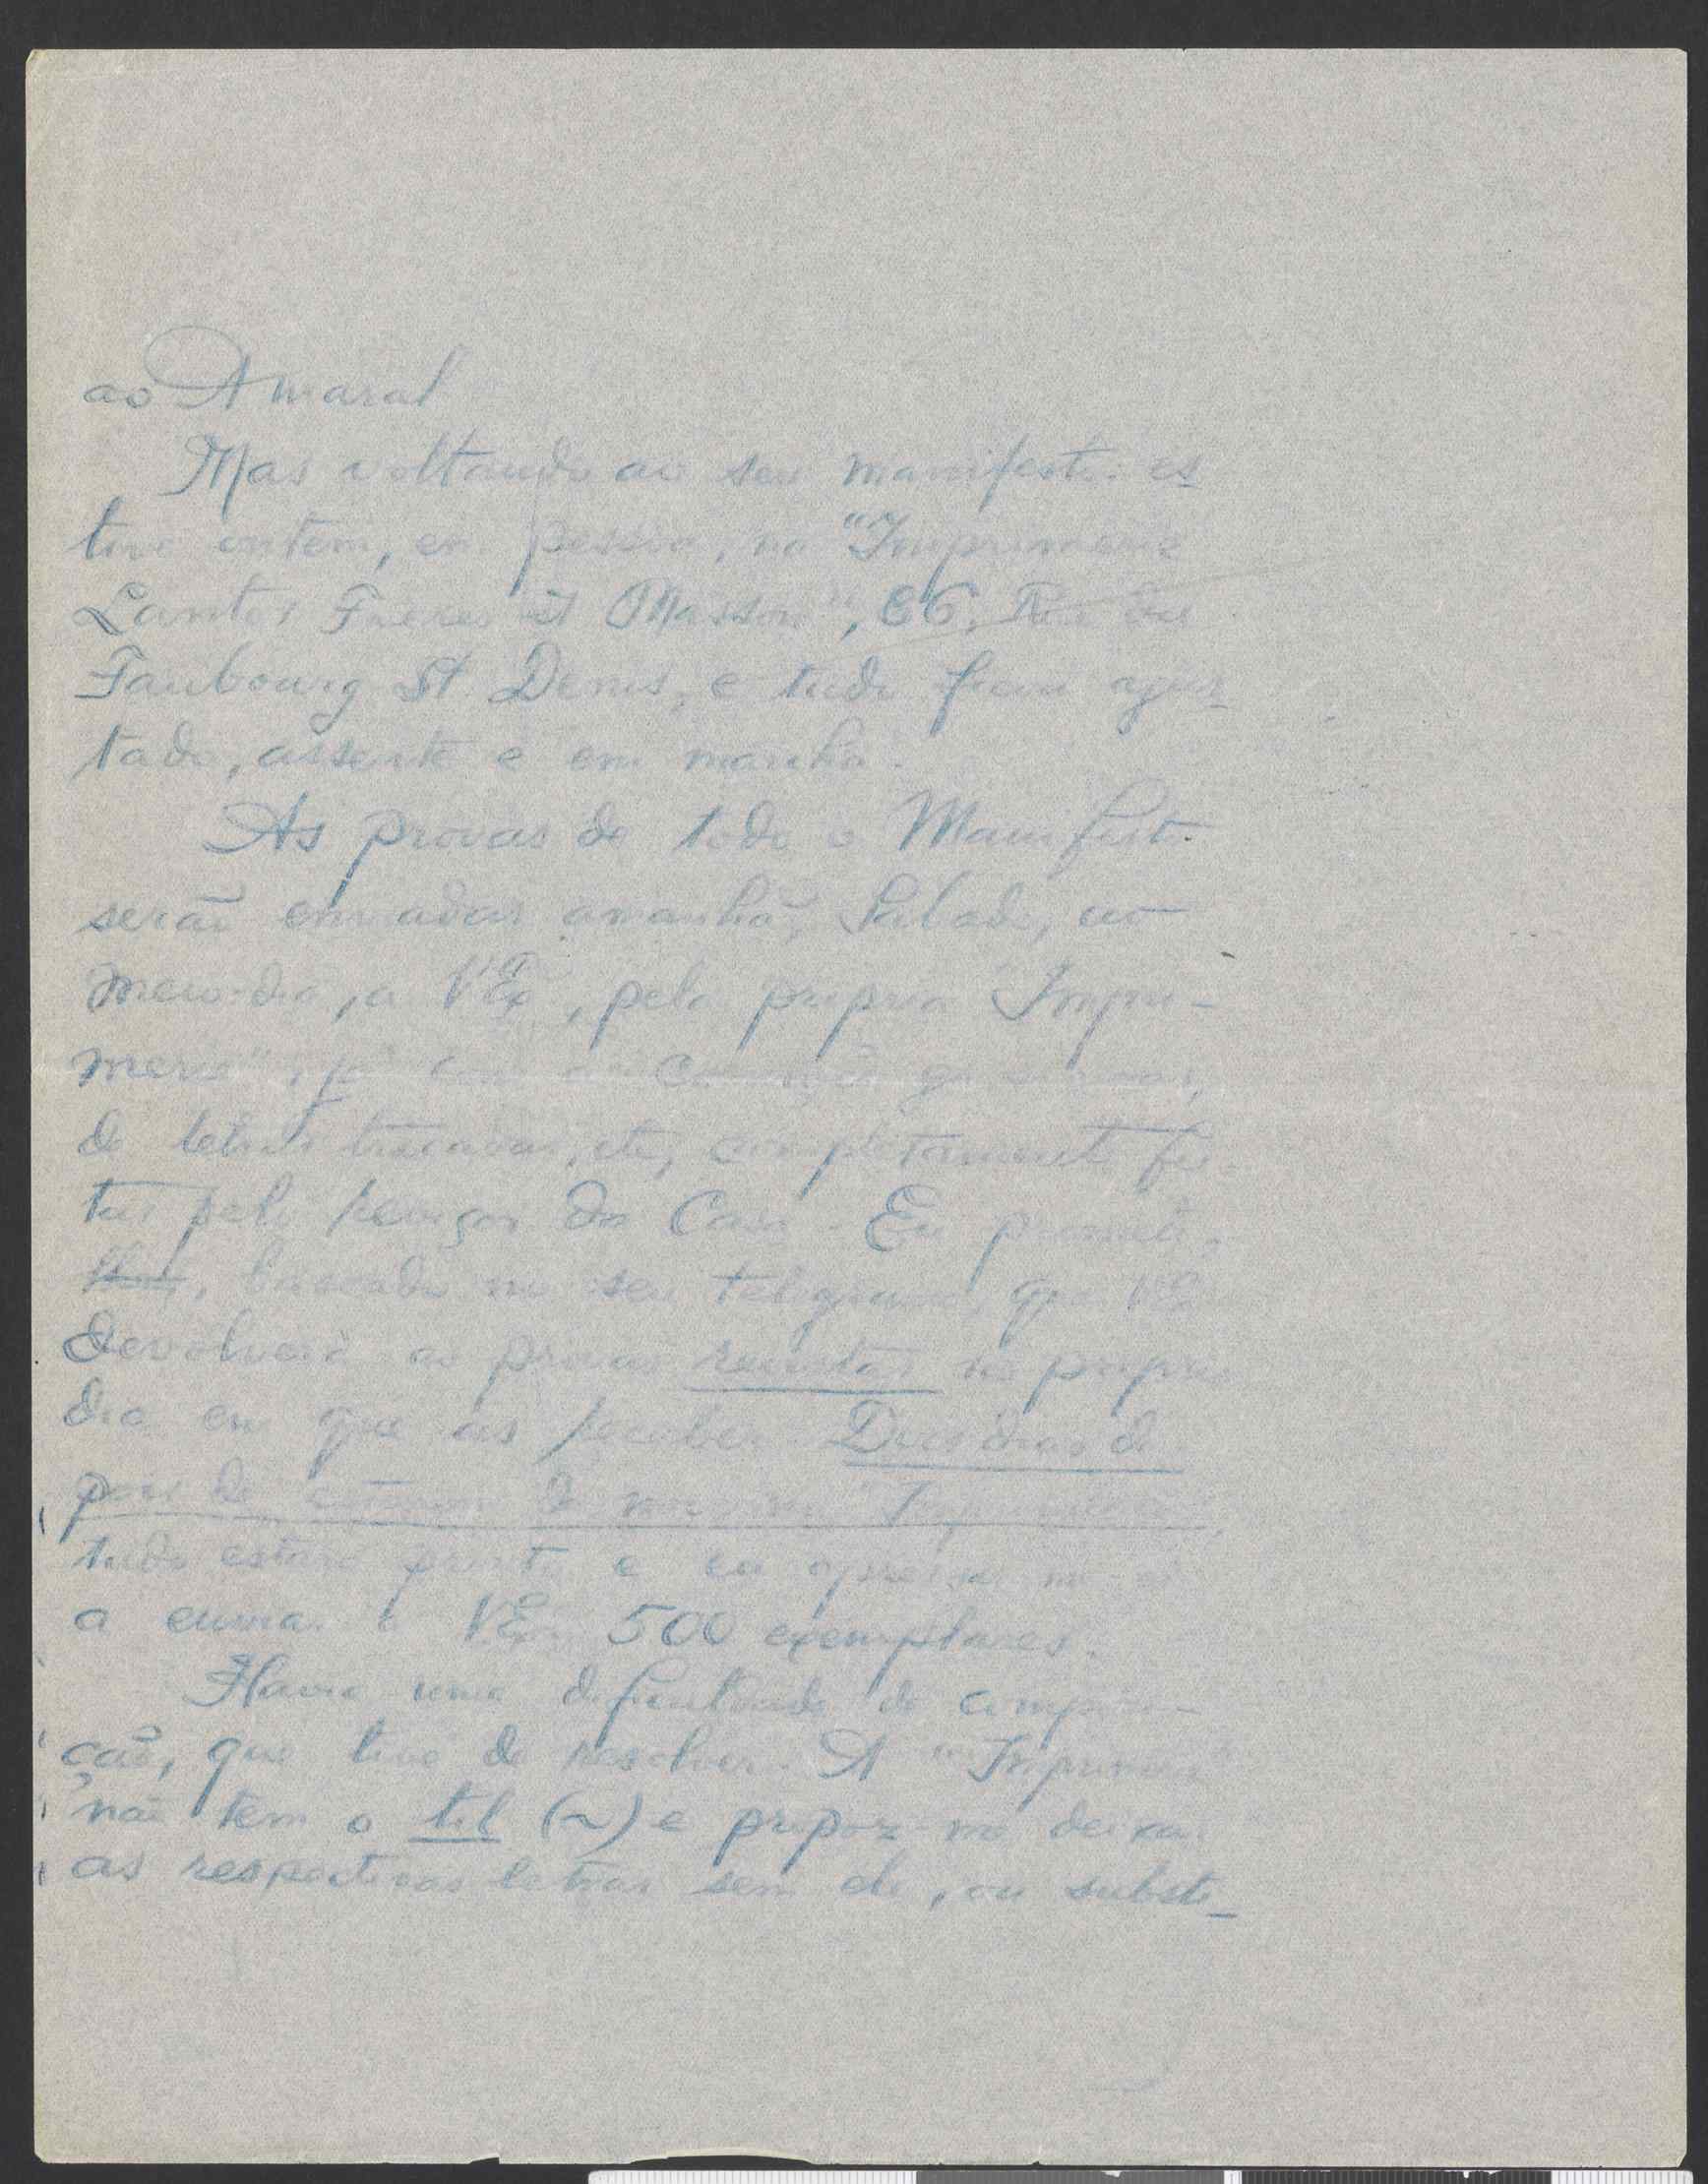 ao Amaral
Mas voltando ao seu manifesto: es
tive ontem, em pessoa, na "Imprimerie
Lantos Frères et Masson", 86, Rue du
Faubourg St. Denis, e tudo ficou ajus
tado, assente e em marcha.
As provas de todo o Manifesto
serão enviadas amanhã, Sabado, ao
meio-dia, a V Exª, pela propria "Impri-
merie", já com as
de letras trocadas, etc, completamente fei
tas pelo revisor da Casa. Eu prometi-
, baseado no seu telegrama, que V Exª
devolverá as provas revistas no proprio
dia em que as receber. Dois dias de
pois de na Imprimerie,
tudo estará pronto e eu apressar-me-ei
a enviar a V Exª 500 exemplares.
Havia uma dificuldade de composi-
ção, que tive de resolver. A "Imprimerie"
não tem o til (~) e propoz-me deixar
as respectivas letras sem ele, ou substi